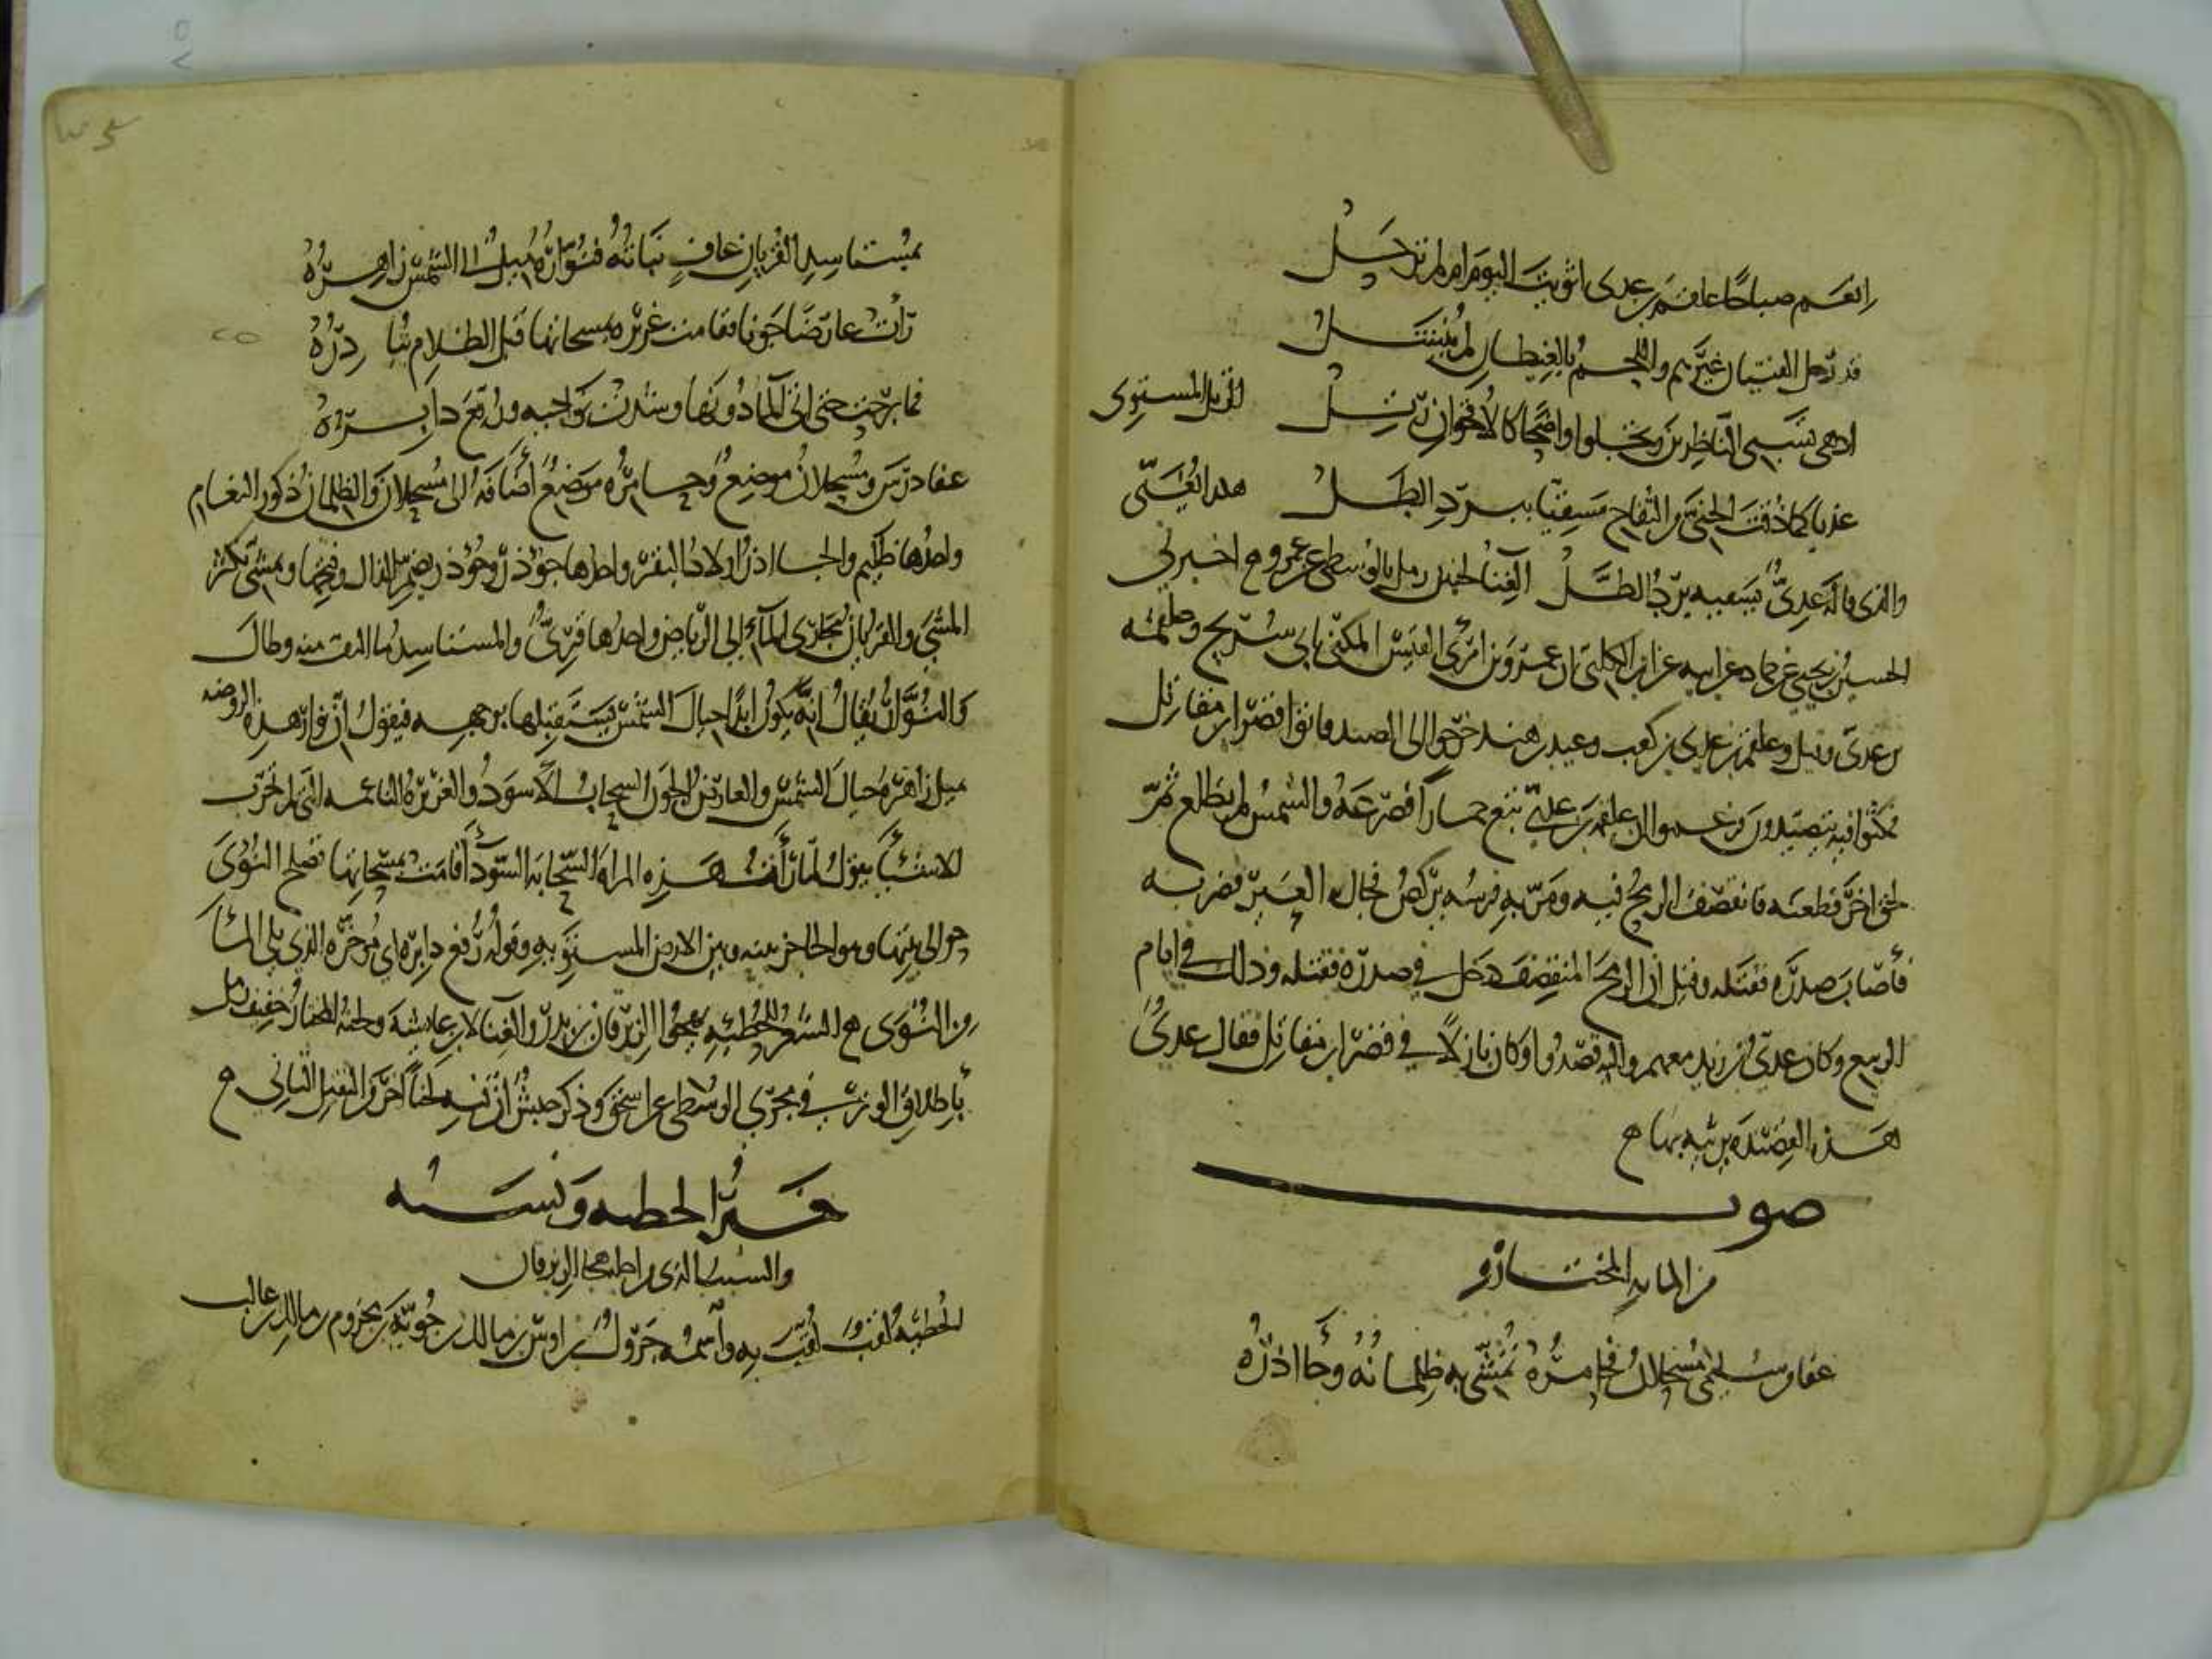 انعم صباحا علقم بن عدى اثويت اليوم ام لم ترحل
قد رحل الفتيان عيرهم واللحم بالغيطان لم ينتشل
اذ هى تسبى الناظرين وتجلوا واضحا كالاقحوان رتل
الرتل المستوى
عذبا كما ذقت الجنى من التفاح مسقيا ببرد الطل
هكذا يغنى
والذى قاله عدى يسقيه برد الطل الغنا لحنين رمل بالوسطى عن عمرو ح اخبرنى
الحسين بن يحيى عن حماد عن ابيه عن ابن الكلبى ان عمرو بن امرئ القيس المكنى بابى سريح وعلقمه
بن عدى وعلقمة بن عدى بن كعب وعبد هند خرجوا الى الصيد فاتوا قصر ابن مقاتل
فمكثوا فيه يتصيدون فزعموا ان علقمة بن عدى تبع حمارا فصرعه والشمس لم تطلع ثم
لحق اخر فطعنه فانقصف الرمح فيه ومر به فرسه يركض فجال العير فضربه
فأصاب صدره فقتله وقيل ان الرمح المنقصف دخل فى صدره فقتله وذلك فى ايام
الربيع وكان عدى بن زيد معهم واليه قصدوا وكان نازلا فى قصر ابن مقاتل فقال عدى
هذه القصيدة يرثيه بها ح
صوت
من المايه المختاره
عفا من سليمى مسحلان فحامره تمشى به ظلمانه وجاآذره
بمستاسد القريان عاف نباته فنواره ميل الى الشمس زاهره
رات عارضا جونا فقامت غريره بمسحاتها قبل الظلام تبادره
فما برحت حتى اتى الماء دونها وسدت نواحيه ورفع دابره
عفا درس ومسحلان موضع وحامره موضع أضافه الى مسحلان والظلمان ذكور النعام
واحدها ظليم والجاآذر اولاد البقره واحدها جؤذر وجؤذر بضم الذال وفتحها وتمشى تكثر
المشى والقريان مجارى الماء الى الرياض واحدها قرى والمستاسد ما التف منه وطال
والنوار يقال انه يكون ابدا حيال الشمس يستقبلها بوجهه فيقول ان نوار هذه الروضه
ميل زاهره حيال الشمس والعارض الجون السحاب الأسود والغريره الناعمه التى لم تجرب
الاشيأ يقول لما رأت هذه المراه السحابه السوداء قامت بمسحاتها تصلح النؤى
حوالى بيتها وهو الحاجز بينه وبين الارض المستويه وقوله رفع دابره اى مؤخره الذى يلى المأ
من النؤى ح الشعر للحطيه يهجوا الزبرقان بن بدر والغنا لابن عايشه ولحنه المختار خفيف رمل
بأطلاق الوتر فى مجرى الوسطى عن اسحق وذكر حبش ان فيه لحنا اخر من الثقيل الثانى ح
خبر الحطيه ونسبه
والسبب الذى من اجله هجا الزبرقان
الحطيه لقب لقب به وأسمه جرول بن اوس بن مالك بن جؤيه بن مخزوم بن مالك بن غالب